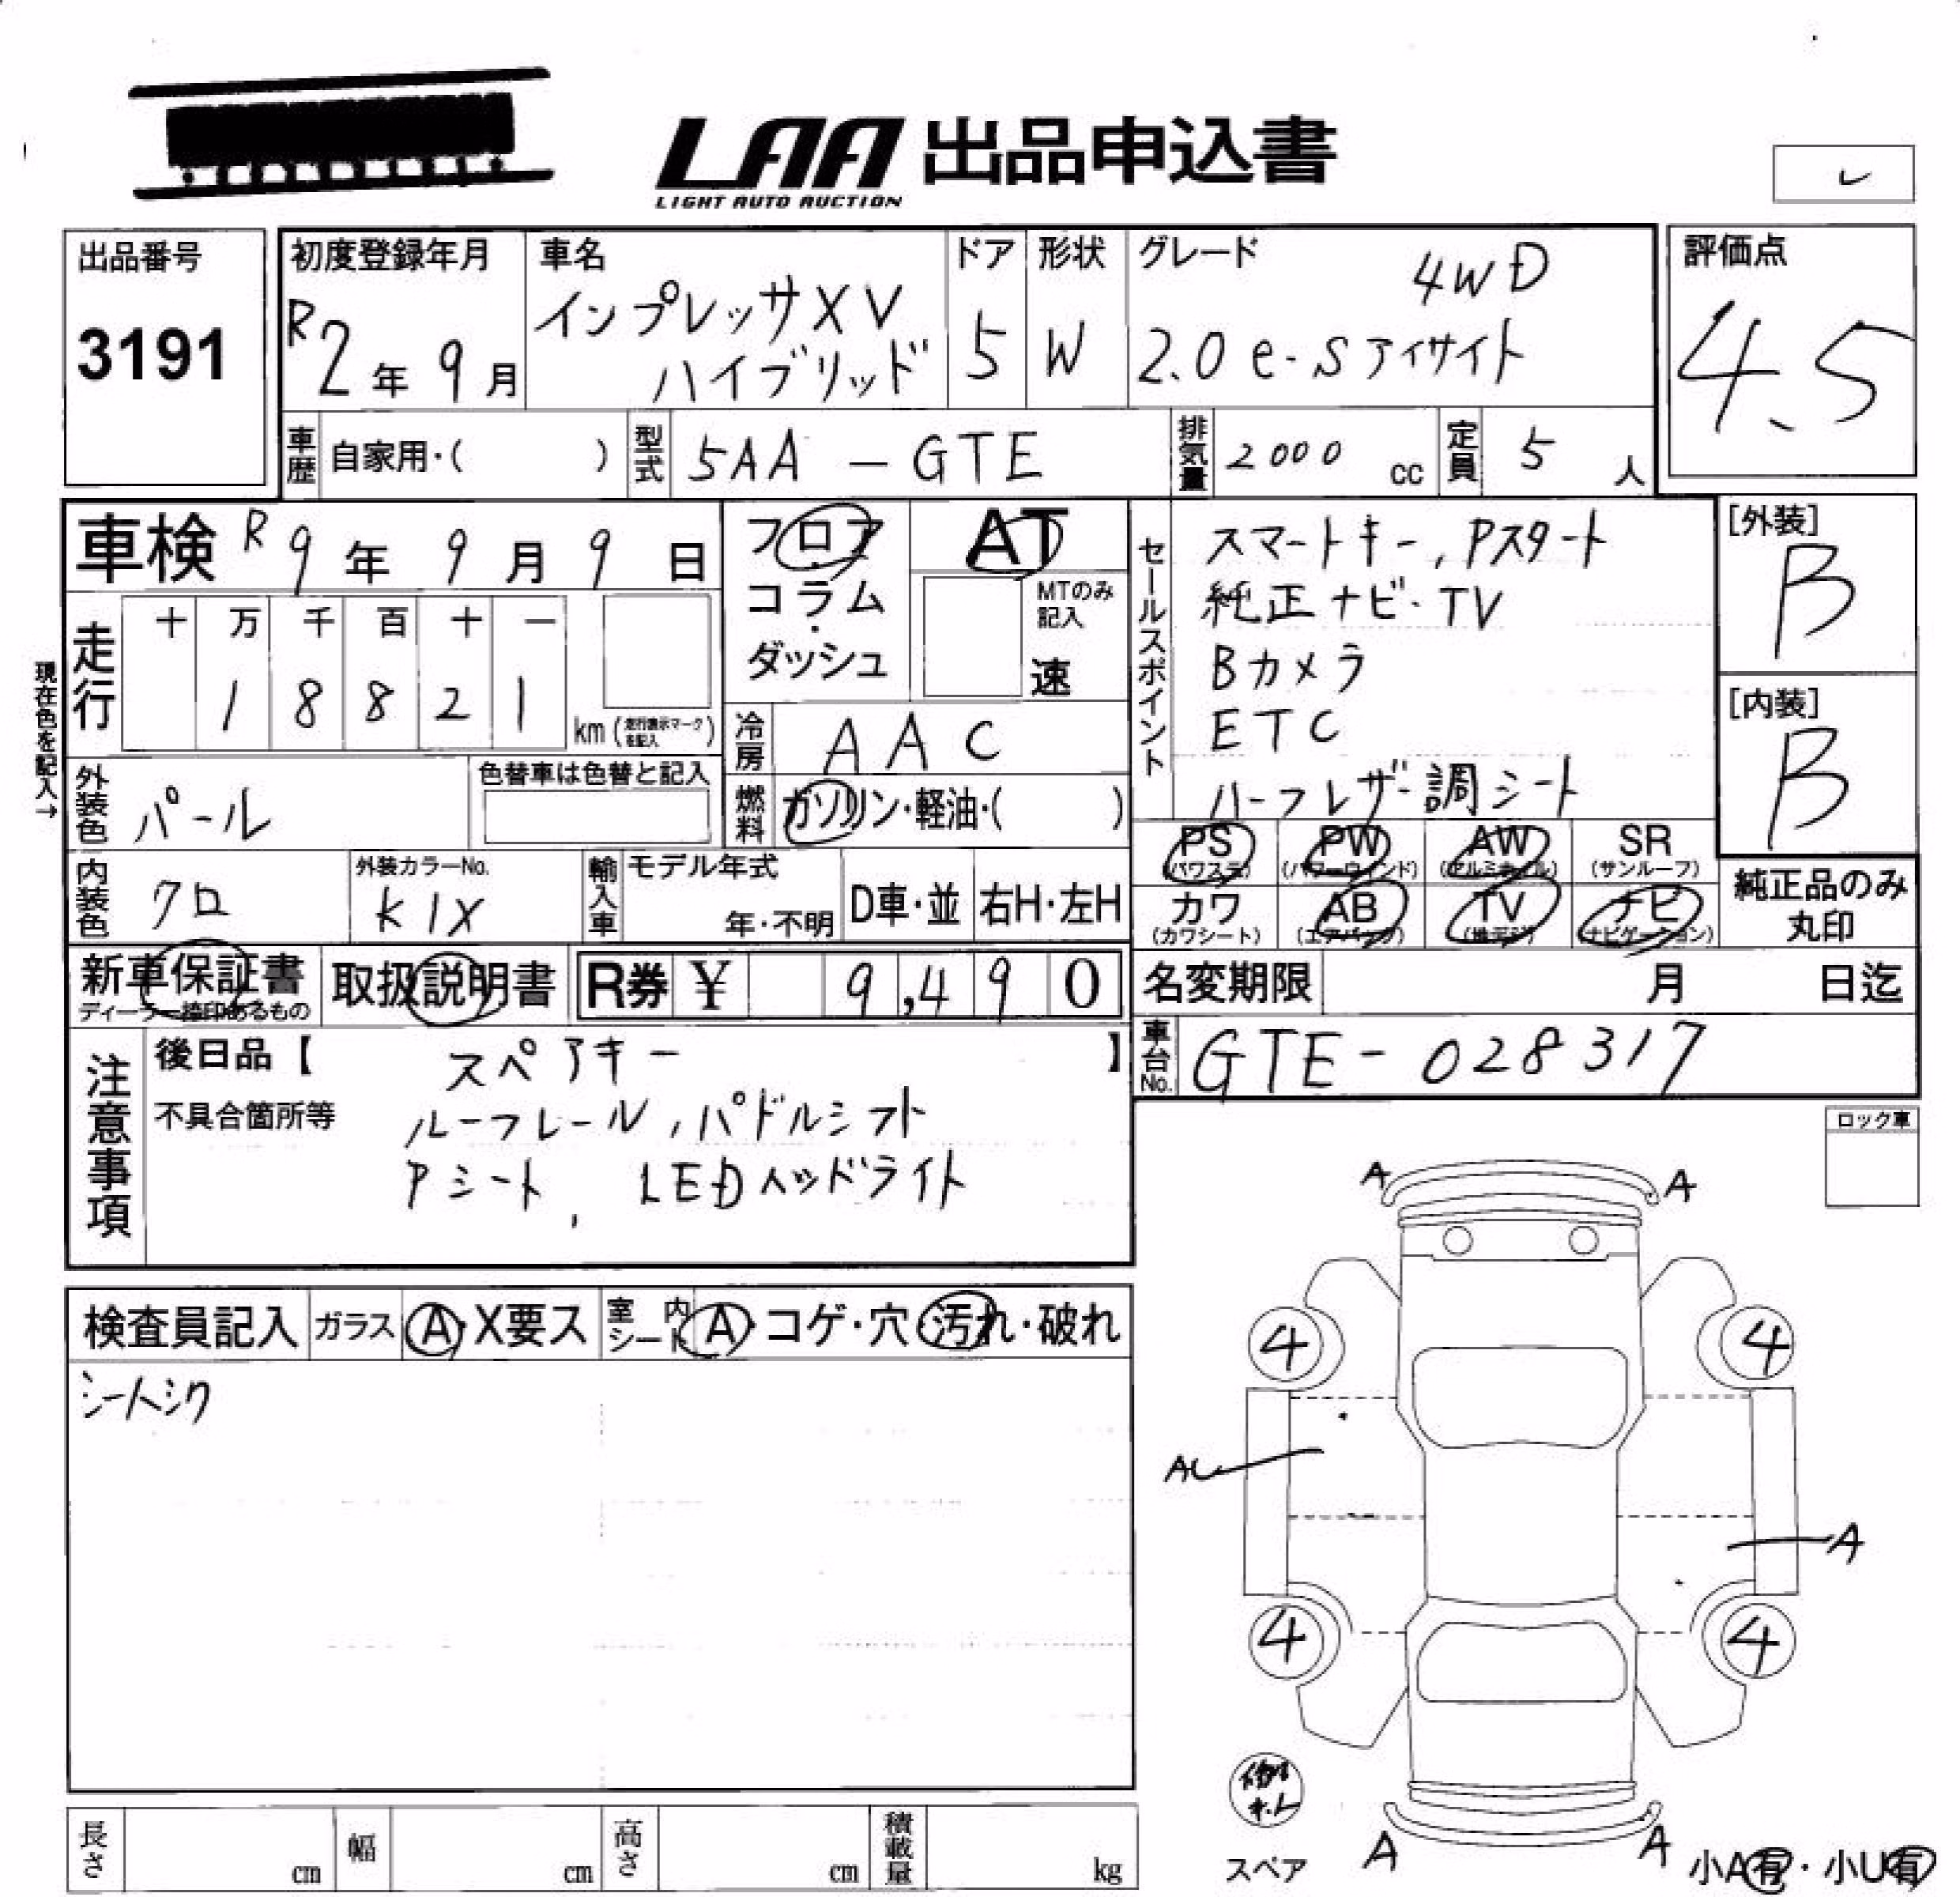 LAA 出品申込書
LIGHT AUTO AUCTION
出品番号
3191
初度登録年月
R2年9月
車名
インプレッサXV
ハイブリッド
ドア
5
形状
W
グレード
4WD
2.0 e-Sアイサイト
評価点
4.5
車歴 自家用・( )
型式 5AA-GTE
排気量 2000 cc
定員 5 人
車検 R9年9月9日
フロア
コラム・
ダッシュ
AT
MTのみ
記入
速
セールスポイント
スマートキー,Pスタート
純正ナビ・TV
Bカメラ
ETC
ハーフレザー調シート
[外装]
B
[内装]
B
現在色を記入→
走行
十 万 千 百 十 一
1 8 8 2 1
km (走行表示マークを記入)
冷房 AAC
外装色 パール
色替車は色替と記入
燃料 ガソリン・軽油・( )
PS
(パワステ)
PW
(パワーウィンド)
AW
(アルミホイル)
SR
(サンルーフ)
内装色 クロ
外装カラーNo.
K1X
輸入車
モデル年式
年・不明
D車・並
右H・左H
カワ
(カワシート)
AB
(エアバック)
TV
(地デジ)
ナビ
(ナビゲーション)
純正品のみ
丸印
新車保証書
ディーラー捺印あるもの
取扱説明書
R券 ¥ 9,490
名変期限 月 日迄
車台No. GTE-028317
注意事項
後日品【 スペアキー 】
不具合箇所等
ルーフレール,パドルシフト
Pシート, LEDヘッドライト
ロック車
検査員記入
ガラス A・X要ス
室内シート A・コゲ・穴・汚れ・破れ
シートシワ
A A
4 4
A
A
4 4
スペア
A A
小A有・小U有
長さ cm
幅 cm
高さ cm
積載量 kg